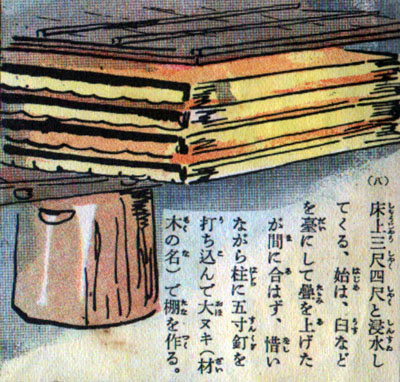 (八)
床上三尺四尺と浸水し
てくる、始は、臼など
を臺にして疊を上げた
が間に合はず、惜い
ながら柱に五寸釘を
打ち込んで大ヌキ(材
木の名)で棚を作る。